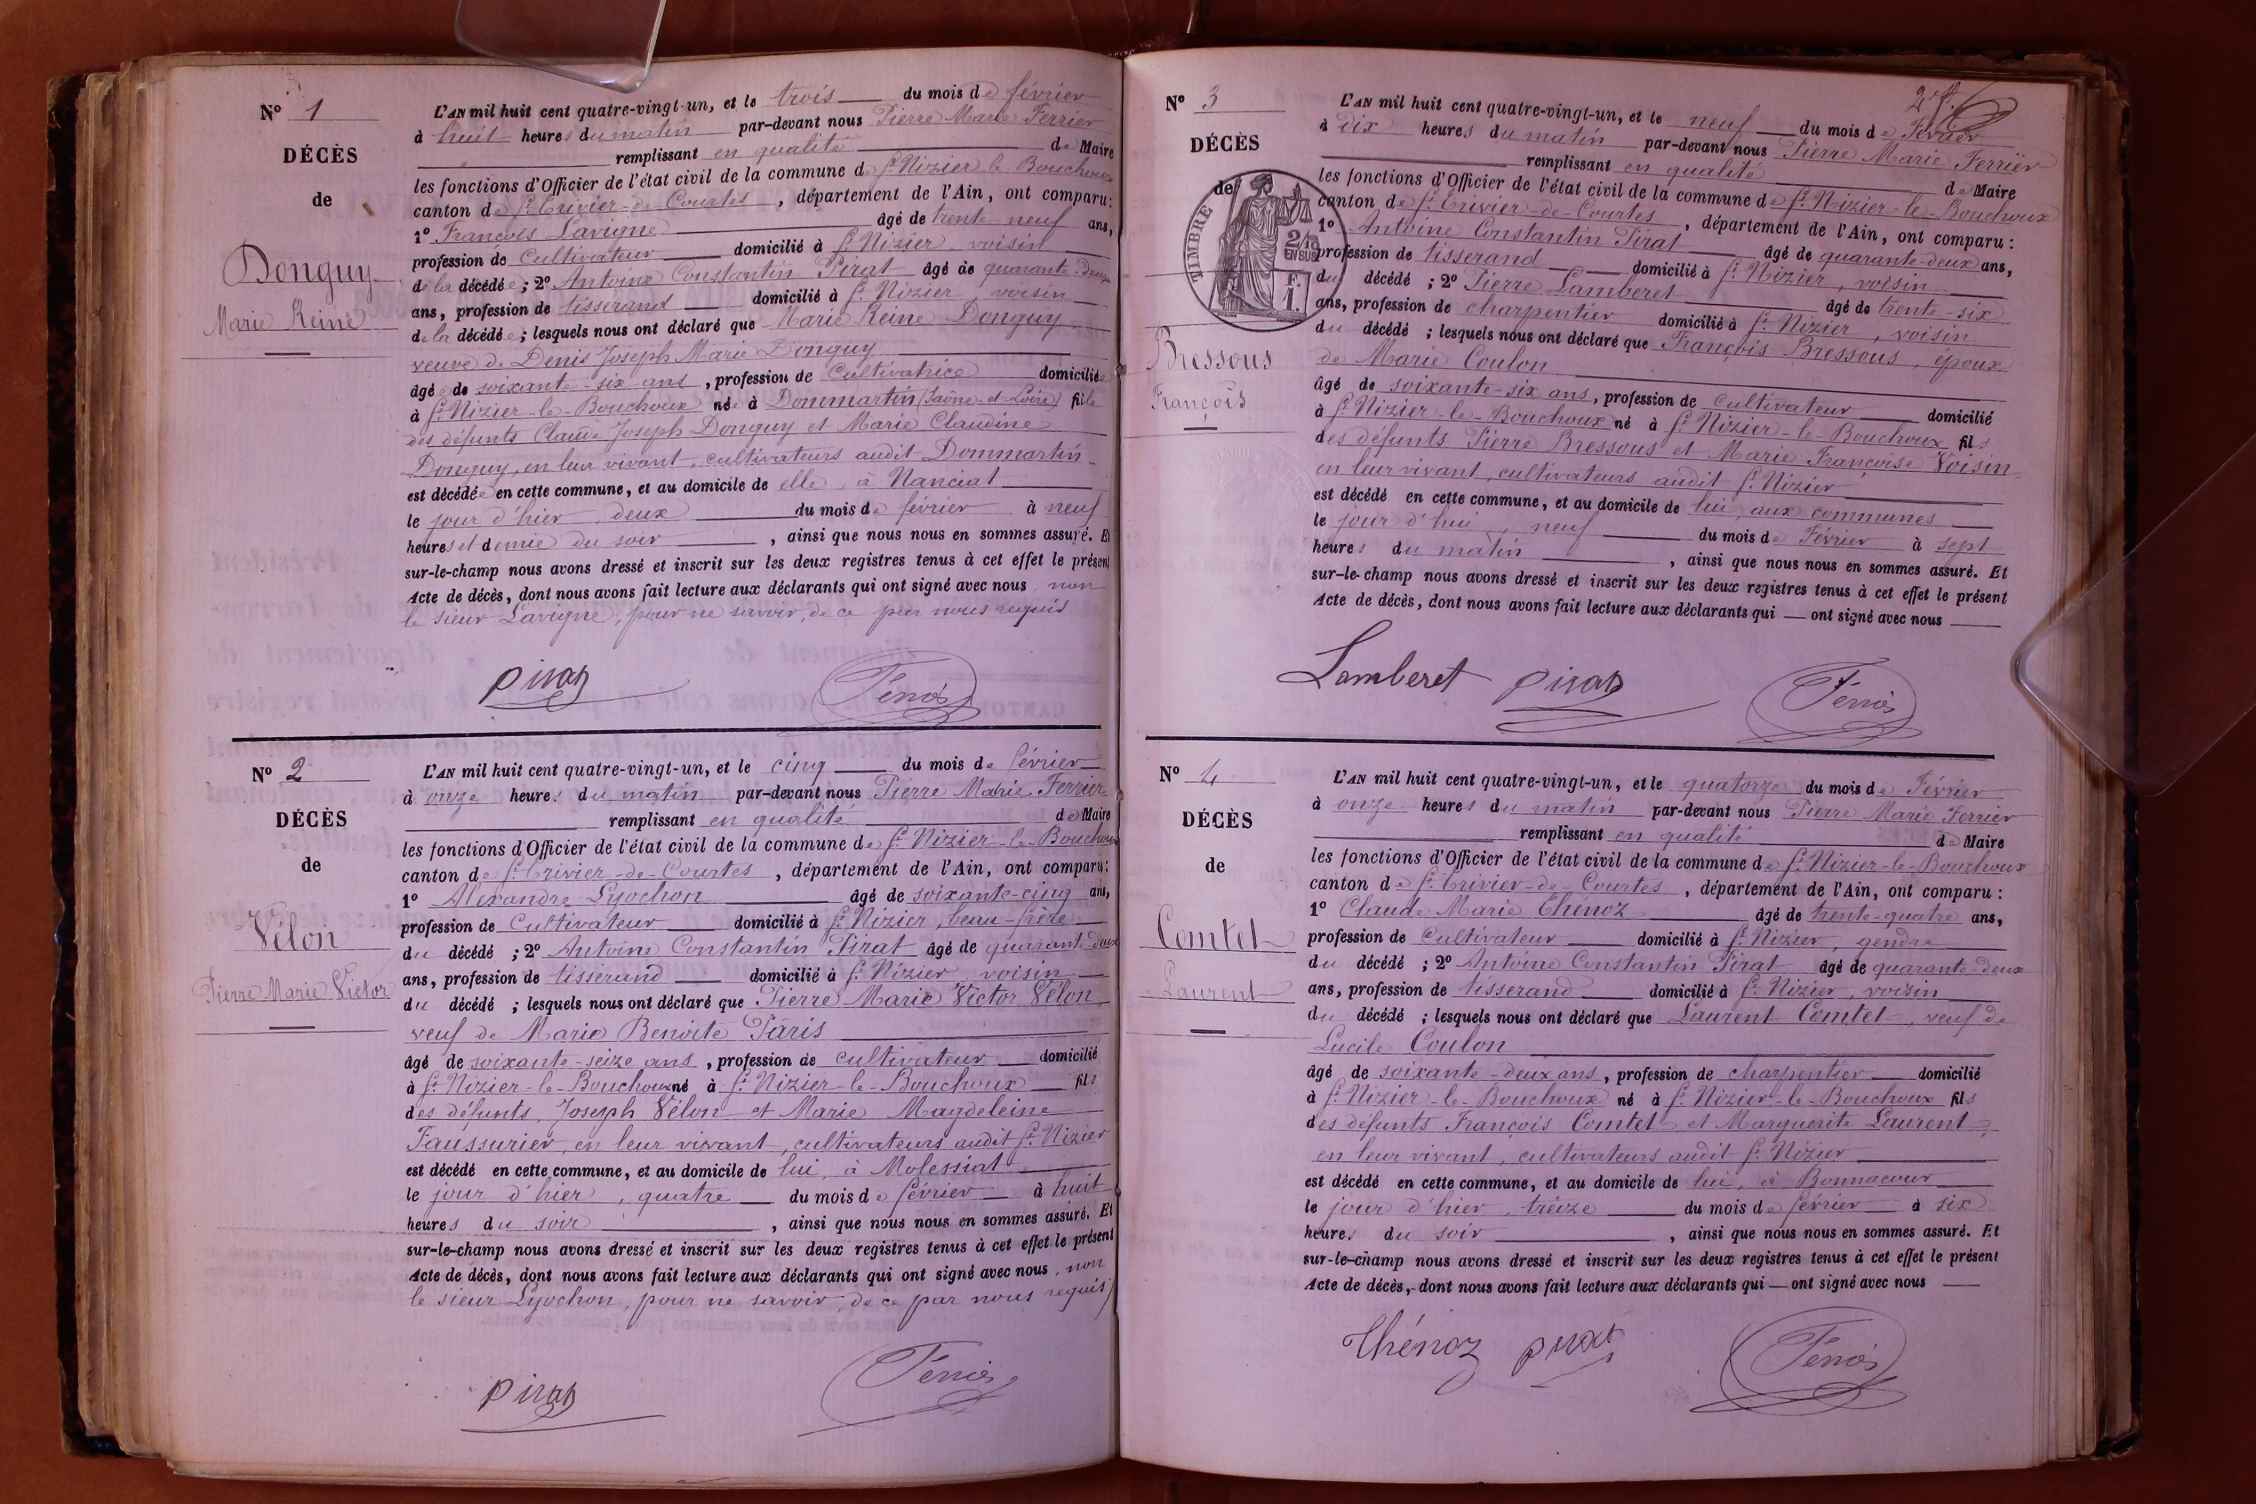 N° 1
DÉCÈS
de
Donguy
Marie Reine
L'AN mil huit cent quatre-vingt-un, et le trois du mois de février
à huit heures du matin par-devant nous Pierre Marie Ferrier
remplissant en qualité de Maire
les fonctions d'Officier de l'état civil de la commune de St Nizier le Bouchoux
canton de St Trivier-de-Courtes, département de l'Ain, ont comparu:
1° François Lavigne âgé de trente-neuf ans,
profession de Cultivateur domicilié à St Nizier, voisin
de la décédée; 2° Antoine Constantin Pirat âgé de quarante-deux
ans, profession de tisserand domicilié à St Nizier, voisin
de la décédée; lesquels nous ont déclaré que Marie Reine Donguy
veuve de Denis Joseph Marie Donguy
âgée de soixante-six ans, profession de Cultivatrice domiciliée
à St Nizier-le-Bouchoux née à Dommartin (Saône-et-Loire) fille
des défunts Claude Joseph Donguy et Marie Claudine
Donguy, en leur vivant, cultivateurs audit Dommartin
est décédée en cette commune, et au domicile de elle, à Nanciat
le jour d'hier deux du mois de février à neuf
heures et demie du soir, ainsi que nous nous en sommes assuré. Et
sur-le-champ nous avons dressé et inscrit sur les deux registres tenus à cet effet le présent
Acte de décès, dont nous avons fait lecture aux déclarants qui ont signé avec nous, non
le sieur Lavigne, pour ne savoir, de ce par nous requis
Pirat Ferrier
N° 2
DÉCÈS
de
Vélon
Pierre Marie Victor
L'AN mil huit cent quatre-vingt-un, et le cinq du mois de février
à onze heures du matin par-devant nous Pierre Marie Ferrier
remplissant en qualité de Maire
les fonctions d'Officier de l'état civil de la commune de St Nizier-le-Bouchoux
canton de St Trivier-de-Courtes, département de l'Ain, ont comparu:
1° Alexandre Lyochon âgé de soixante-cinq ans,
profession de Cultivateur domicilié à St Nizier, beau-frère
du décédé; 2° Antoine Constantin Pirat âgé de quarante-deux
ans, profession de tisserand domicilié à St Nizier, voisin
du décédé; lesquels nous ont déclaré que Pierre Marie Victor Vélon
veuf de Marie Benoite Pâris
âgé de soixante-seize ans, profession de cultivateur domicilié
à St Nizier-le-Bouchoux né à St Nizier-le-Bouchoux fils
des défunts Joseph Vélon et Marie Magdeleine
Faussurier, en leur vivant, cultivateurs audit St Nizier
est décédé en cette commune, et au domicile de lui, à Molessiat
le jour d'hier, quatre du mois de février à huit
heures du soir, ainsi que nous nous en sommes assuré. Et
sur-le-champ nous avons dressé et inscrit sur les deux registres tenus à cet effet le présent
Acte de décès, dont nous avons fait lecture aux déclarants qui ont signé avec nous, non
le sieur Lyochon, pour ne savoir, de ce par nous requis
Pirat Ferrier
2 f.
N° 3
DÉCÈS
de
TIMBRE
2/10
EN SUS
F.
1.
Bressous
François
L'AN mil huit cent quatre-vingt-un, et le neuf du mois de Février
à dix heures du matin par-devant nous Pierre Marie Ferrier
remplissant en qualité de Maire
les fonctions d'Officier de l'état civil de la commune de St Nizier-le-Bouchoux
canton de St Trivier-de-Courtes, département de l'Ain, ont comparu:
1° Antoine Constantin Pirat âgé de quarante-deux ans,
profession de tisserand domicilié à St Nizier, voisin
du décédé; 2° Pierre Lamberet âgé de trente-six
ans, profession de charpentier domicilié à St Nizier, voisin
du décédé; lesquels nous ont déclaré que François Bressous, époux
de Marie Coulon
âgé de soixante-six ans, profession de Cultivateur domicilié
à St Nizier-le-Bouchoux né à St Nizier-le-Bouchoux fils
des défunts Pierre Bressous et Marie Françoise Voisin
en leur vivant, cultivateurs audit St Nizier
est décédé en cette commune, et au domicile de lui, aux communes
le jour d'hui, neuf du mois de Février à sept
heures du matin, ainsi que nous nous en sommes assuré. Et
sur-le-champ nous avons dressé et inscrit sur les deux registres tenus à cet effet le présent
Acte de décès, dont nous avons fait lecture aux déclarants qui — ont signé avec nous
Lamberet Pirat Ferrier
N° 4
DÉCÈS
de
Comtet
Laurent
L'AN mil huit cent quatre-vingt-un, et le quatorze du mois de Février
à onze heures du matin par-devant nous Pierre Marie Ferrier
remplissant en qualité de Maire
les fonctions d'Officier de l'état civil de la commune de St Nizier-le-Bouchoux
canton de St Trivier-de-Courtes, département de l'Ain, ont comparu:
1° Claude Marie Thénoz âgé de trente-quatre ans,
profession de Cultivateur domicilié à St Nizier, gendre
du décédé; 2° Antoine Constantin Pirat âgé de quarante-deux
ans, profession de tisserand domicilié à St Nizier, voisin
du décédé; lesquels nous ont déclaré que Laurent Comtet, veuf de
Lucile Coulon
âgé de soixante-deux ans, profession de charpentier domicilié
à St Nizier-le-Bouchoux né à St Nizier-le-Bouchoux fils
des défunts François Comtet et Marguerite Laurent,
en leur vivant, cultivateurs audit St Nizier
est décédé en cette commune, et au domicile de lui, à Bonnacour
le jour d'hier, treize du mois de février à six
heures du soir, ainsi que nous nous en sommes assuré. Et
sur-le-champ nous avons dressé et inscrit sur les deux registres tenus à cet effet le présent
Acte de décès, dont nous avons fait lecture aux déclarants qui — ont signé avec nous
Thénoz Pirat Ferrier